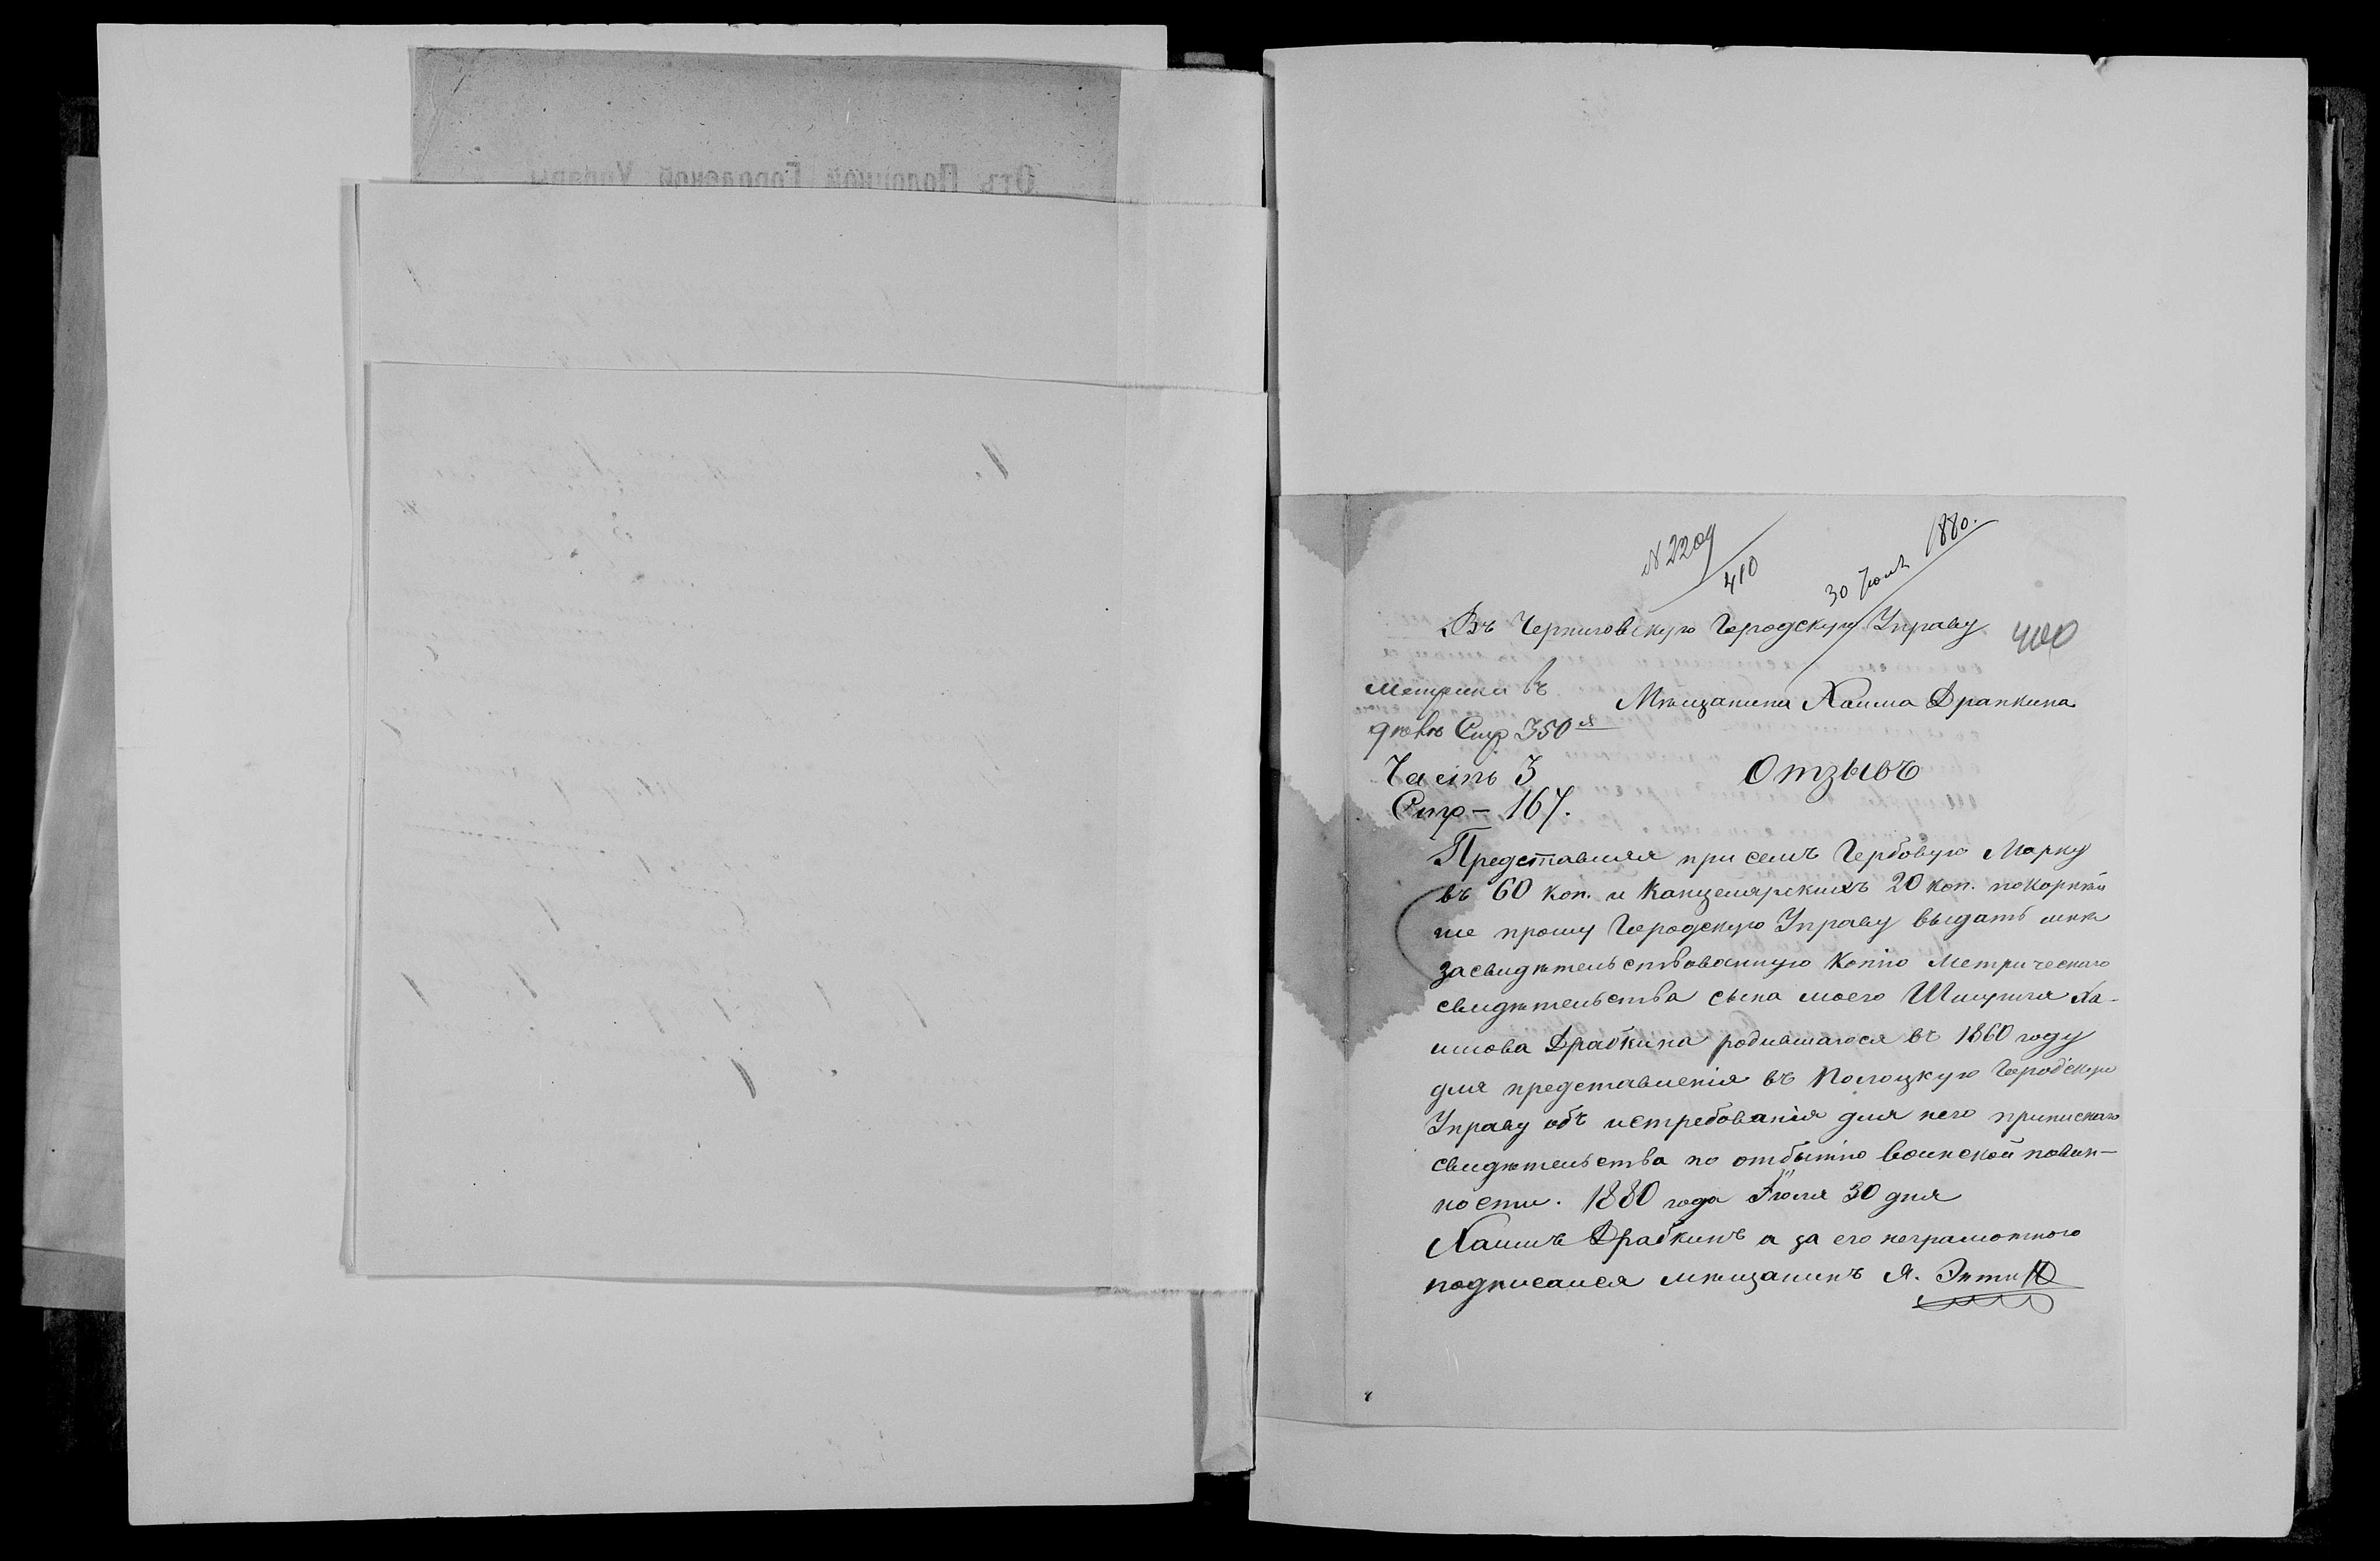 Отъ Полоцкой Городской Управы
№ 2209
410
30 Іюля 1880.
Въ Черниговскую Городскую Управу
400
Метрика въ
дѣлѣ Стр 350я
Часть 3
Стр – 167.
Мѣщанина Хаима Драпкина
Отзывъ
Представляя при семъ Гербовую Марку
въ 60 коп. и Канцелярскихъ 20 коп. покорнѣй
ше прошу Городскую Управу выдать мнѣ
засвидѣтельствованную Копію Метрическаго
свидѣтельства сына моего Шмуила Ха-
имова Драбкина родившагося въ 1860 году
для представленія въ Полоцкую Городскую
Управу объ истребованія для него приписнаго
свидѣтельства по отбытію воинской повин-
ности. 1880 года Іюля 30 дня
Хаимъ Драбкинъ а за его неграмотного
подписался мѣщанинъ Я.